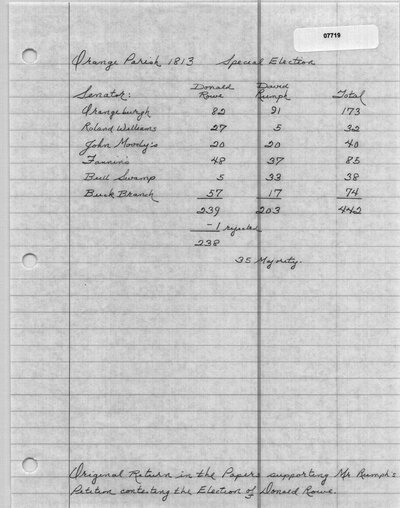 07719
Orange Parish 1813 Special Election
Senator: Donald Rowe David Rumph Total
Orangeburgh 82 91 173
Roland Williams 27 5 32
John Moody's 20 20 40
Fannin's 48 37 85
Bull Swamp 5 33 38
Buck Branch 57 17 74
239 203 442
-1 rejected
238
35 Majority.
Original Return in the Papers supporting Mr Rumph's
Petition contesting the Election of Donald Rowe.